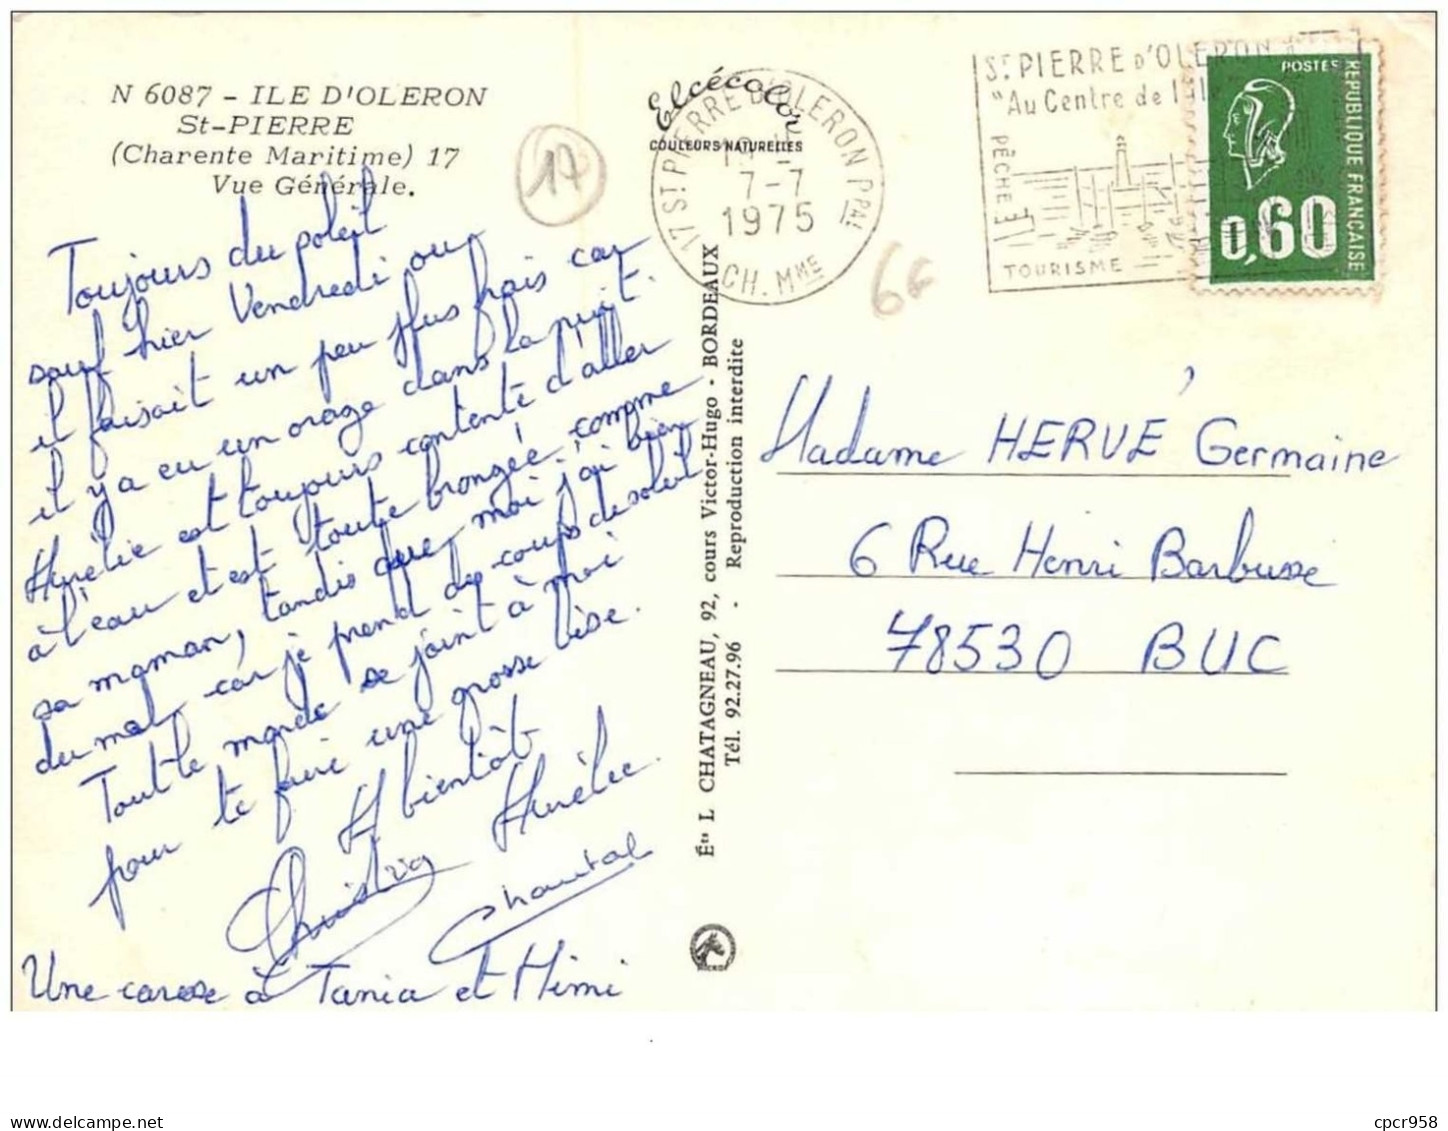 N 6087 - ILE D'OLERON
St-PIERRE
(Charente Maritime) 17
Vue Générale.
17
Elcécolor
COULEURS NATURELLES
17 ST PIERRE D'OLERON PPAL
7-7
1975
CH. MME
ST PIERRE D'OLERON
"Au Centre de l'Ile
PÊCHE
TOURISME
POSTES
REPUBLIQUE FRANÇAISE
0,60
66
Toujours du soleil
sauf hier Vendredi ou
il faisait un peu plus frais car
il y a eu un orage dans la nuit.
Aurélie est toujours contente d'aller
à l'eau et est toute bronzée comme
sa maman, tandis que moi j'ai bien
du mal car je prend des coups de soleil
Tout le monde se joint à moi
pour te faire une grosse bise.
A bientôt
Aurélie.
Christian
Chantal
Une caresse à Tania et Mimi
Éts L CHATAGNEAU, 92, cours Victor-Hugo - BORDEAUX
Tél. 92.27.96 - Reproduction interdite
Madame HERVÉ Germaine
6 Rue Henri Barbusse
78530 BUC
cpcr958